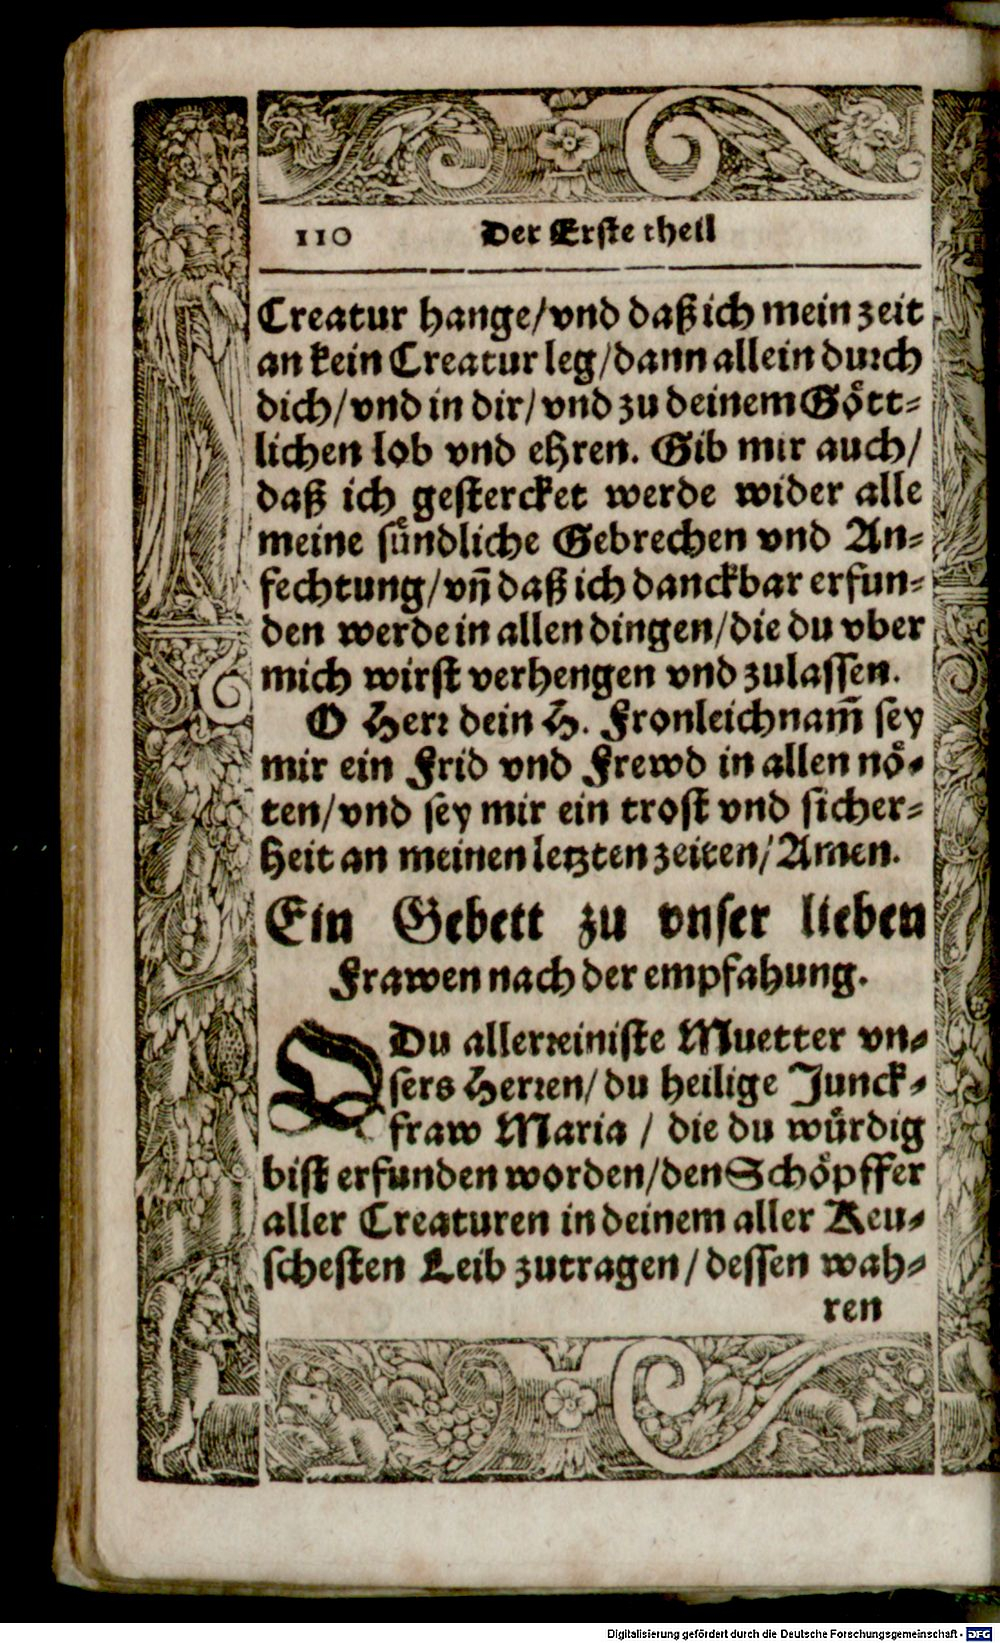 110 Der Erste theil
Creatur hange/vnd daß ich mein zeit
an kein Creatur leg/dann allein durch
dich/vnd in dir/vnd zu deinem Goͤtt-
lichen lob vnd ehren. Gib mir auch/
daß ich gestercket werde wider alle
meine suͤndliche Gebrechen vnd An-
fechtung/vñ daß ich danckbar erfun-
den werde in allen dingen/die du vber
mich wirst verhengen vnd zulassen.
O Herr dein H. Fronleichnam̃ sey
mir ein Frid vnd Frewd in allen noͤ-
ten/vnd sey mir ein trost vnd sicher-
heit an meinen letzten zeiten/Amen.
Ein Gebett zu vnser lieben
Frawen nach der empfahung.
O Du allerreiniste Muetter vn-
sers Herren/du heilige Junck-
fraw Maria / die du wuͤrdig
bist erfunden worden/den Schoͤpffer
aller Creaturen in deinem aller Keu-
schesten Leib zutragen/dessen wah-
ren
Digitalisierung gefördert durch die Deutsche Forschungsgemeinschaft - DFG